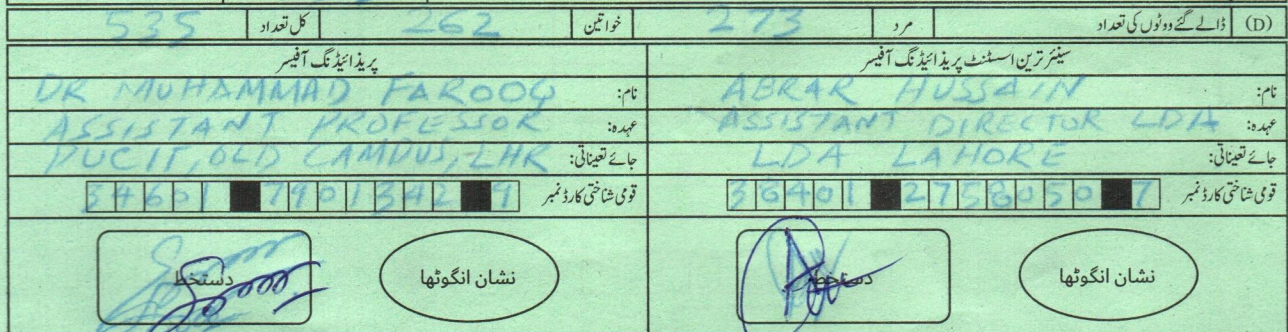 (D) ڈالے گئے ووٹوں کی تعداد مرد 273 خواتین 262 کل تعداد 535
سینئر ترین اسسٹنٹ پریذائیڈنگ آفیسر
نام: ABRAR HUSSAIN
عہدہ: ASSISTANT DIRECTOR LDA
جائے تعیناتی: LDA LAHORE
قومی شناختی کارڈ نمبر 36401 2758050 7
نشان انگوٹھا
دستخط
پریذائیڈنگ آفیسر
نام: DR MUHAMMAD FAROOQ
عہدہ: ASSISTANT PROFESSOR
جائے تعیناتی: PUCIT, OLD CAMPUS, LHR
قومی شناختی کارڈ نمبر 34601 7901342 9
نشان انگوٹھا
دستخط